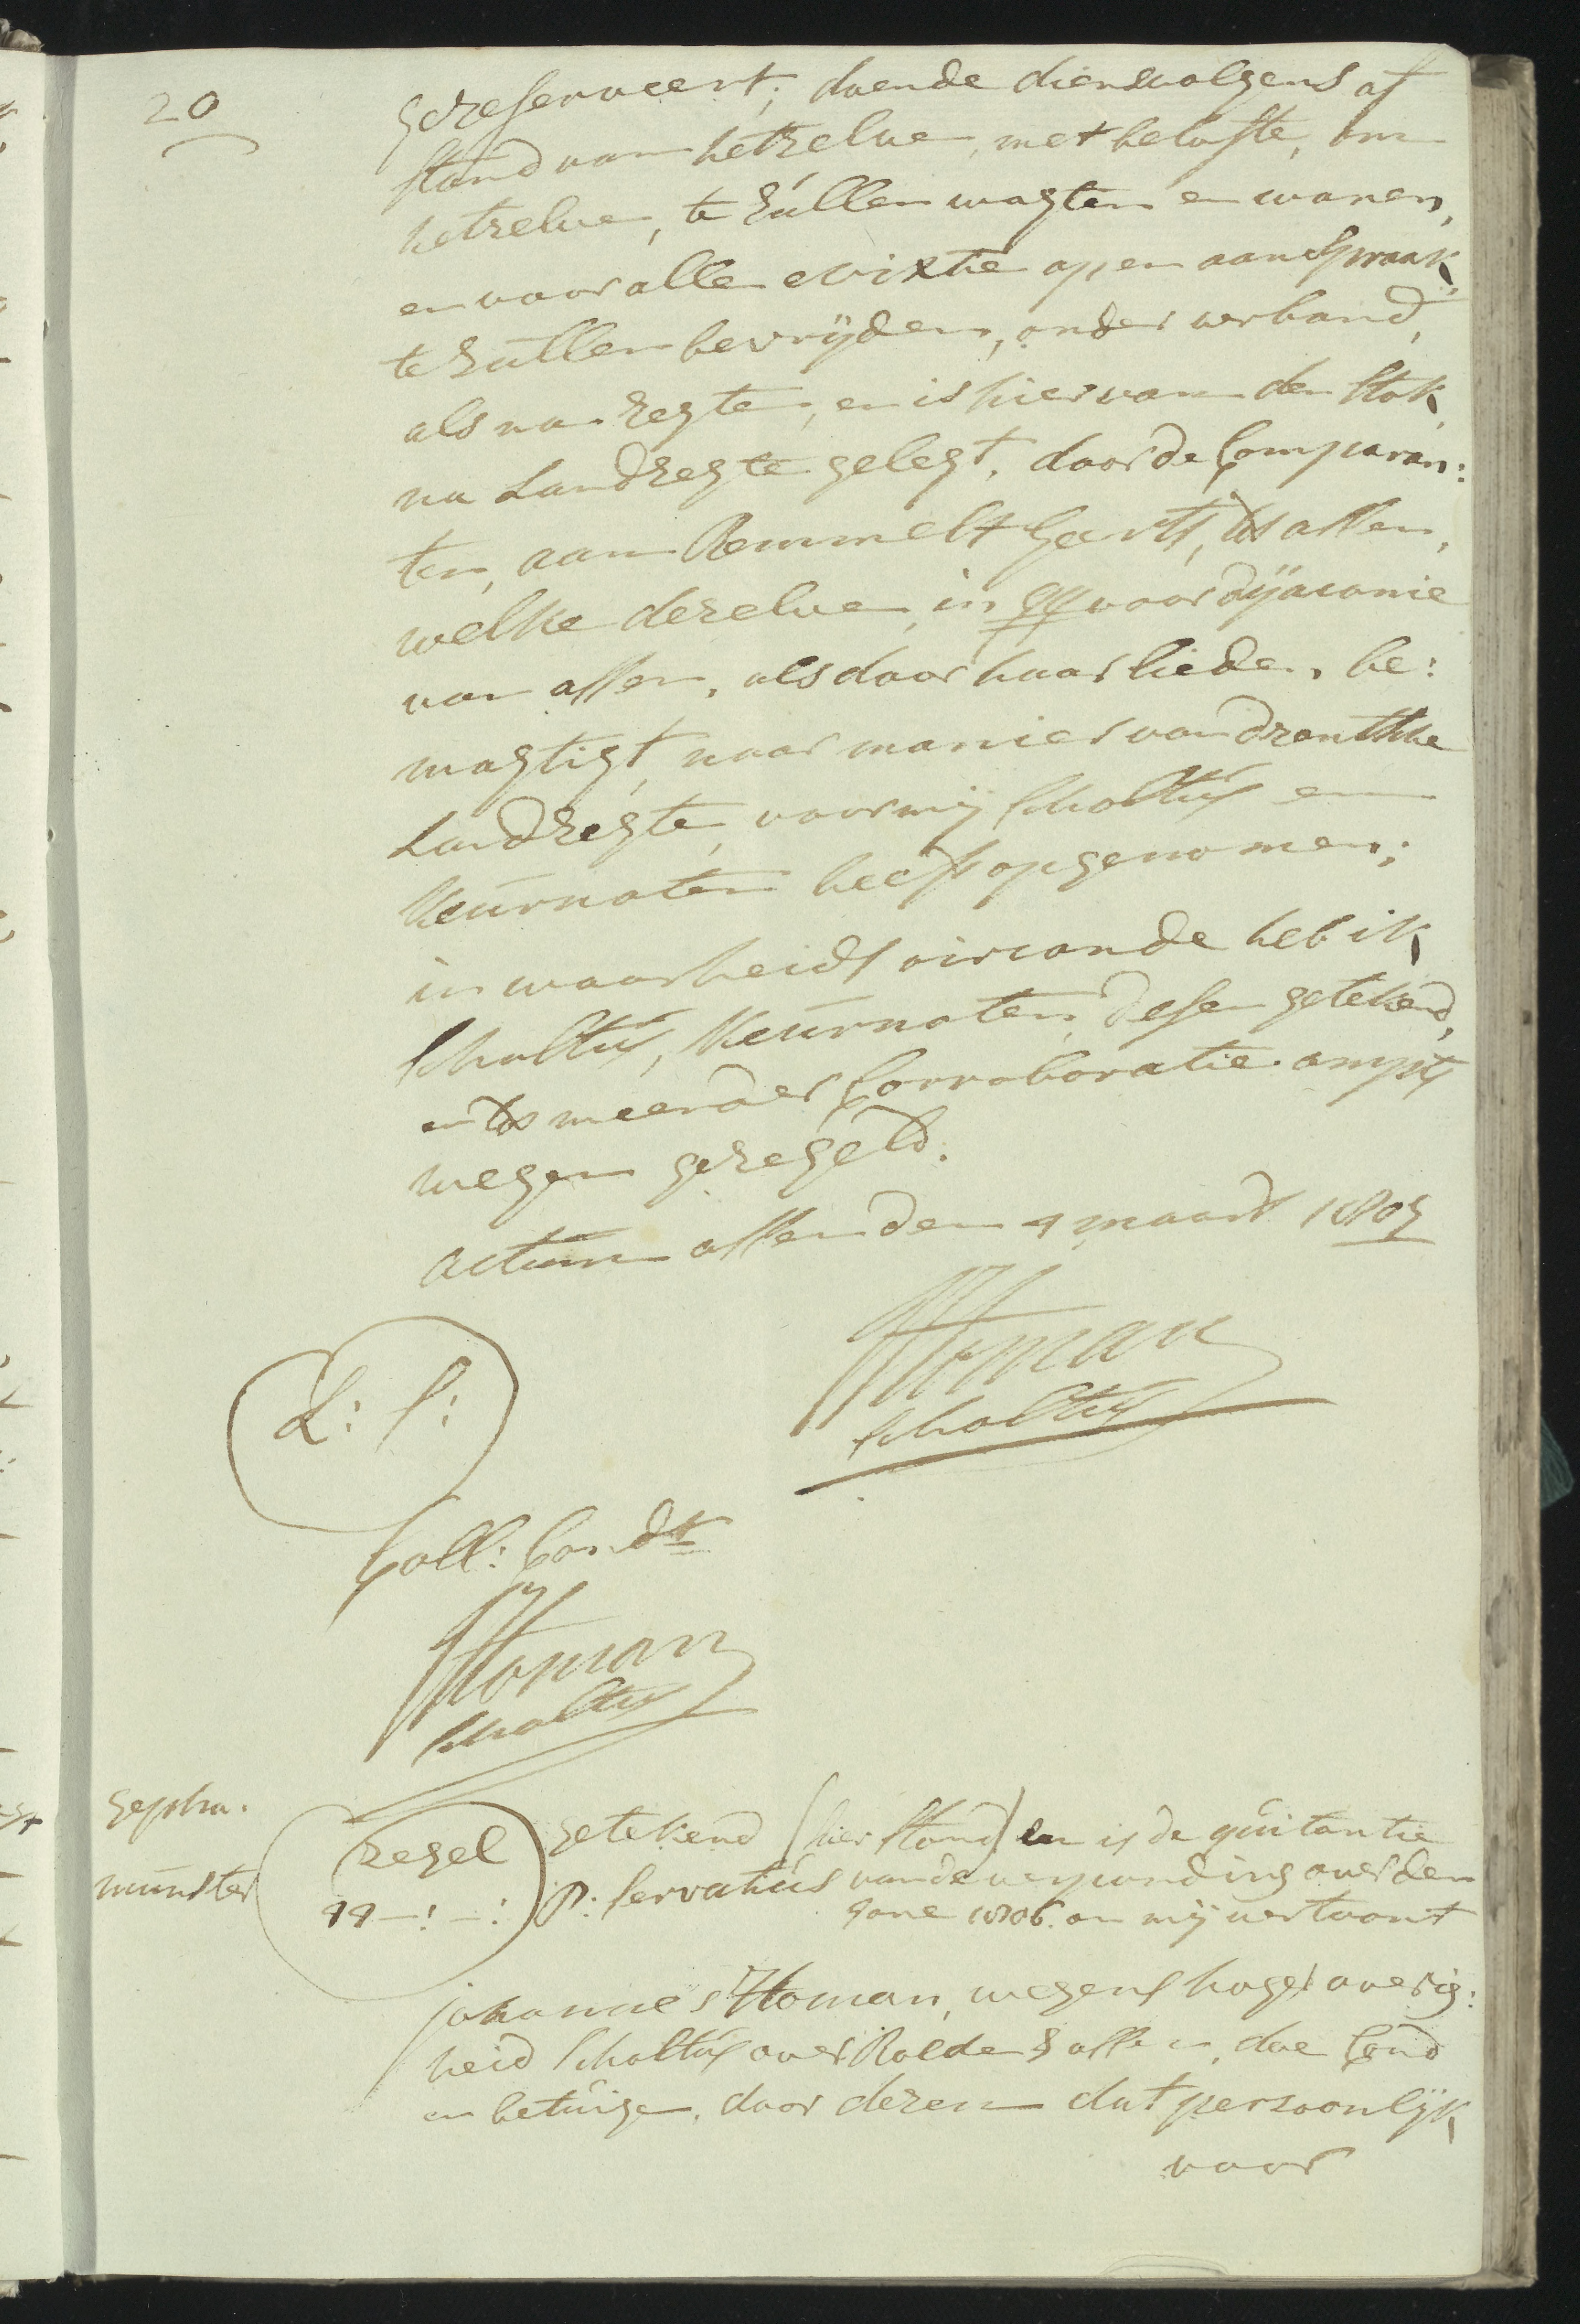 20
gereserveert, doende diensvolgens af
stand van hetzelve, met belofte, om
hetzelve, te zullen wagten en waren,
en voor alle evixtie op en aanspraak,
te zullen bevrijden, onder verband,
als na regten, en is hier van den stok
na Landregte gelegt, door de Comparan:
ten, aan Remmelt Geerts, tot assen,
welke dezelve, in qq voor dyaconie
van assen, als door haarlieden, be:
magtigt, naar manier van drenthse
Landregte, voor mij scholtus en
keurnoten heeft opgenomen;
in waarheids oirconde heb ik
scholtus, keurnoten, desen getekend,
en tot meerder Corroboratie ampts
wegen gezegeld.
actum assen den 4 maart 1807
JHoman
scholtus
L: S:
Coll: Concdt
JHoman
scholtus
munster
zegel
getekend (hier stond) en is de quitantie
P: Servatius van de verponding over den
jare 1806 an mij vertoont
johannes Homan, wegens hoger overig:
heid scholtus over Rolde & assen, doe Cond
en betuige, door dezen dat persoonlijk
voor